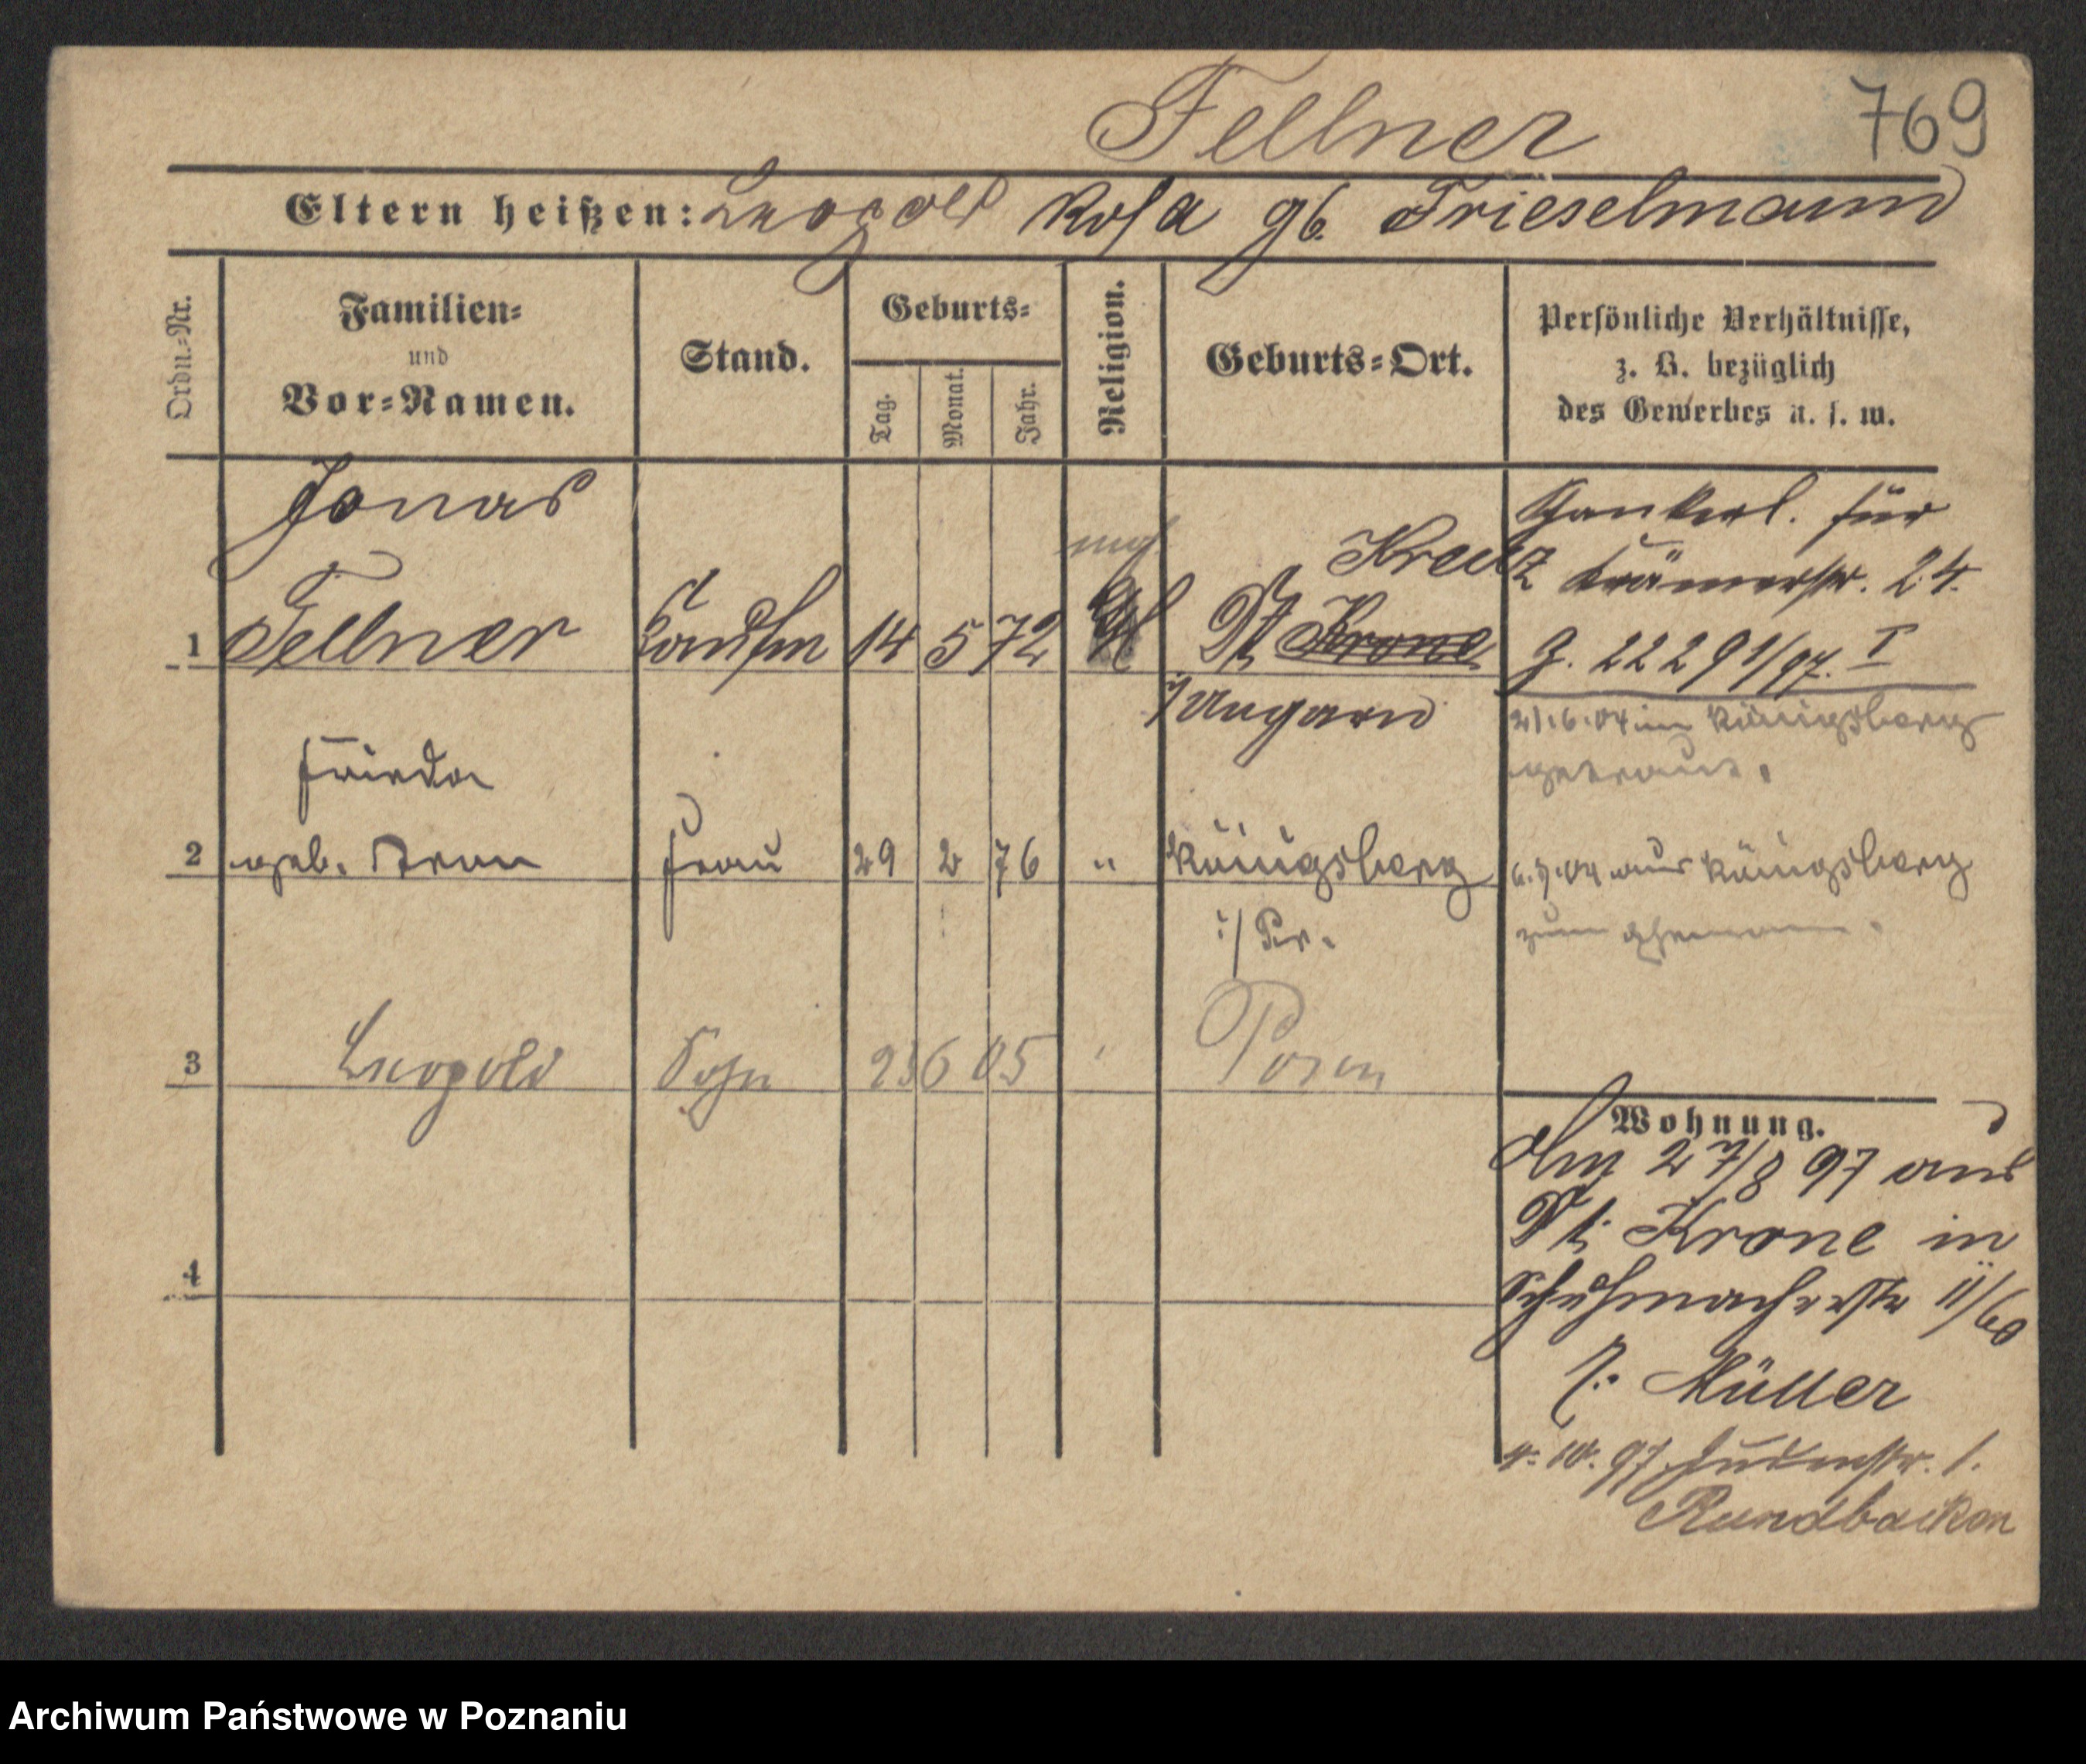 Fellner
769
Eltern heißen: Leopold Rosa gb. Frieselmann
Ordn.-Nr.
Familien-
und
Vor-Namen.
Stand.
Geburts-
Tag.
Monat.
Jahr.
Religion.
Geburts-Ort.
Persönliche Verhältnisse,
z. B. bezüglich
des Gewerbes u. s. w.
Jonas
1 Fellner Kaufm 14 5 72 mos Dt Krone
Kreuz
i/Ungarn
für
Krämerstr. 24.
J. 22291/97. I
21.6.04 in Königsberg
getraut.
Frieda
2 geb. Frau 29 2 76 " Königsberg
i/Pr.
6.7.04 aus Königsberg
zum Ehemann.
3 Leopold Sohn 23 6 05 Posen
4
Wohnung.
Am 27/8 97 aus
Dt. Krone in
Schuhmacherstr 11/60
b. Müller
4. 10. 97 Judenstr. 1.
Rundbacken
Archiwum Państwowe w Poznaniu